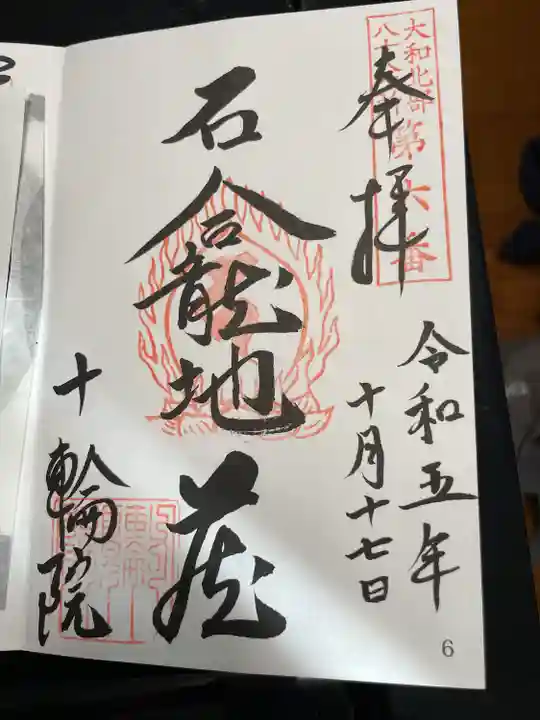 大和北部
八十八ヶ所
第六番
奉拝
令和五年
十月十七日
石龕地蔵
十輪院
6